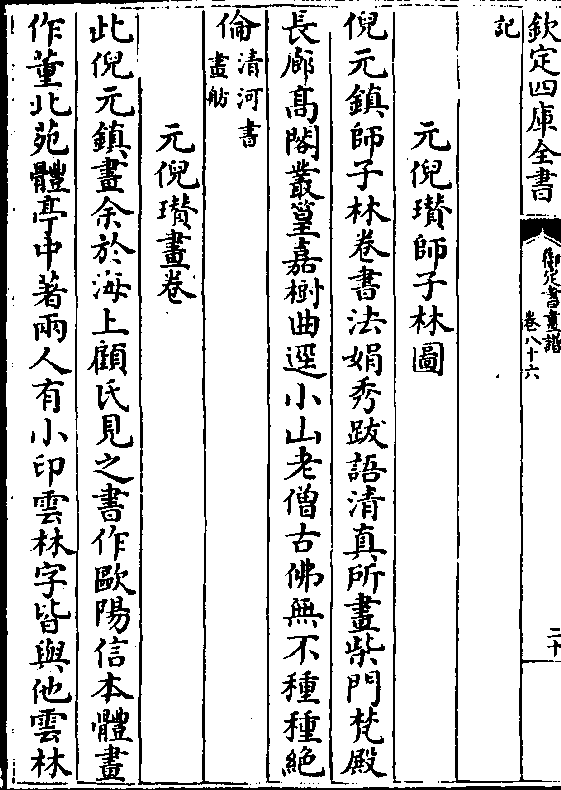 欽定四庫全書
御定書畫譜
卷八十六
二十
記
元倪瓚師子林圖
倪元鎮師子林卷書法娟秀跋語清真所畫柴門梵殿
長廊髙閣叢篁嘉樹曲逕小山老僧古佛無不種種絶
倫清河書
畫舫
元倪瓚畫卷
此倪元鎮畫余於海上顧氏見之書作歐陽信本體畫
作董北苑體亭中著兩人有小印雲林字皆與他雲林